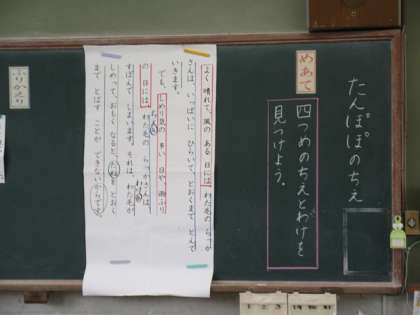 たんぽぽのちえ
めあて
四つめのちえとわけを
見つけよう。
よく 晴れて、風の ある 日には、わた毛の らっか
さんは、いっぱいに ひらいて、とおくまで とんで
いきます。
でも、しめり気の 多い 日や、雨ふり
の 日には、わた毛の らっかさんは、
すぼんで しまいます。それは、わた毛が
しめって、おもく なると、たねを とおく
まで とばす ことが できないからです。
ふりかえり